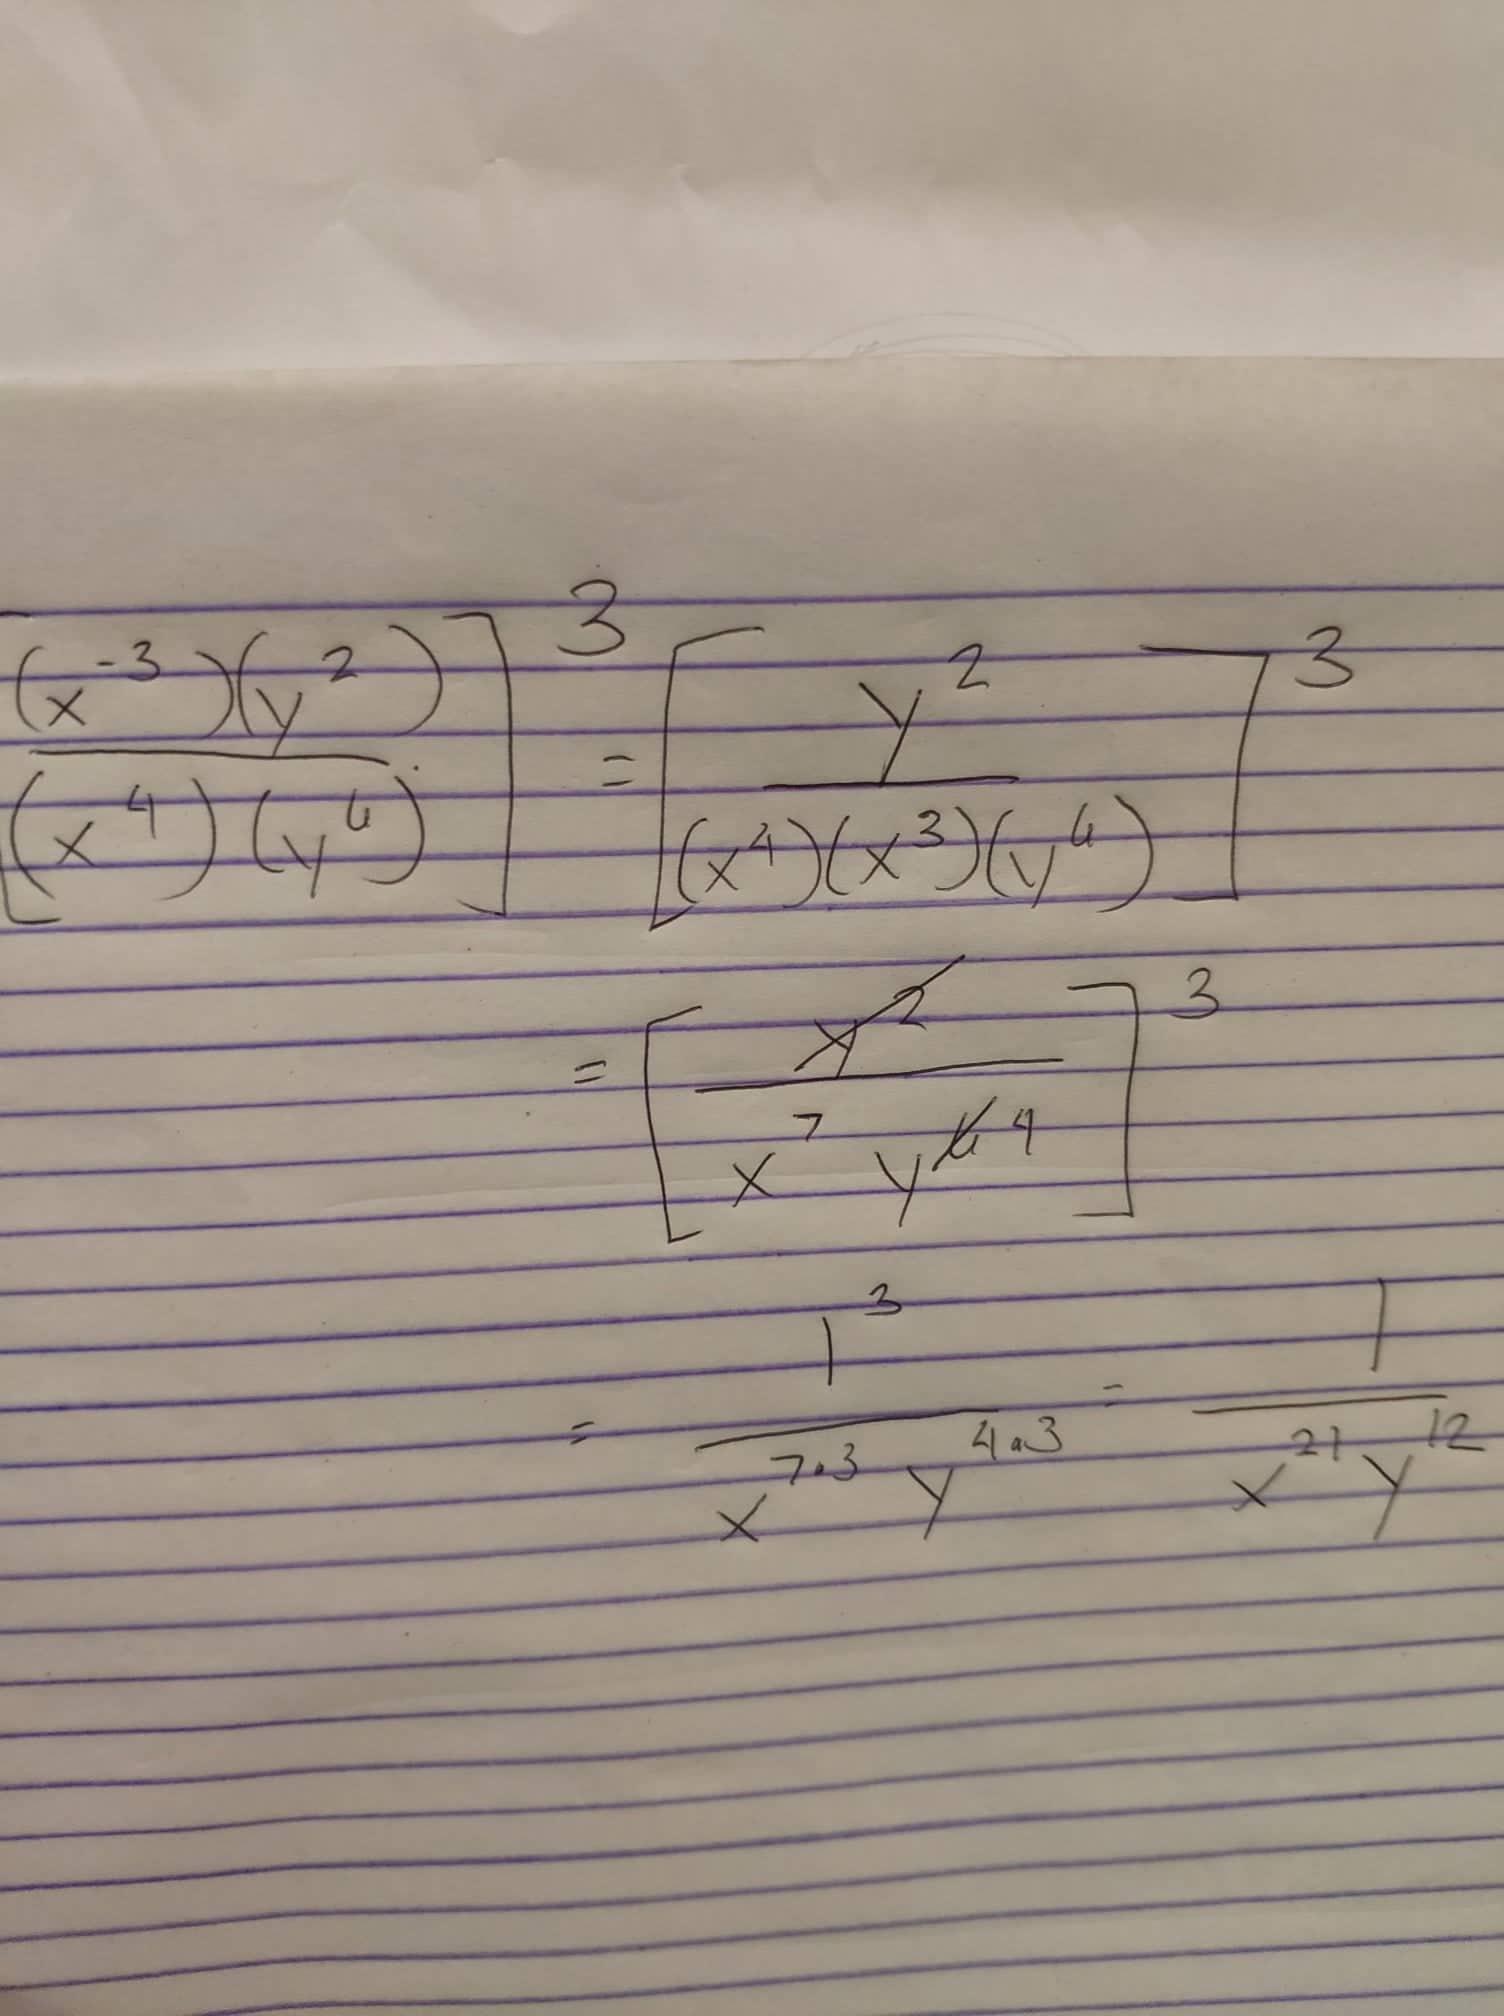 [(x⁻³)(y²) / (x⁴)(y⁶)]³ = [y² / (x⁴)(x³)(y⁶)]³
= [y̶²̶ / x⁷ y⁶̶ ⁴]³
= 1³ / x⁷·³ y⁴·³ = 1 / x²¹ y¹²